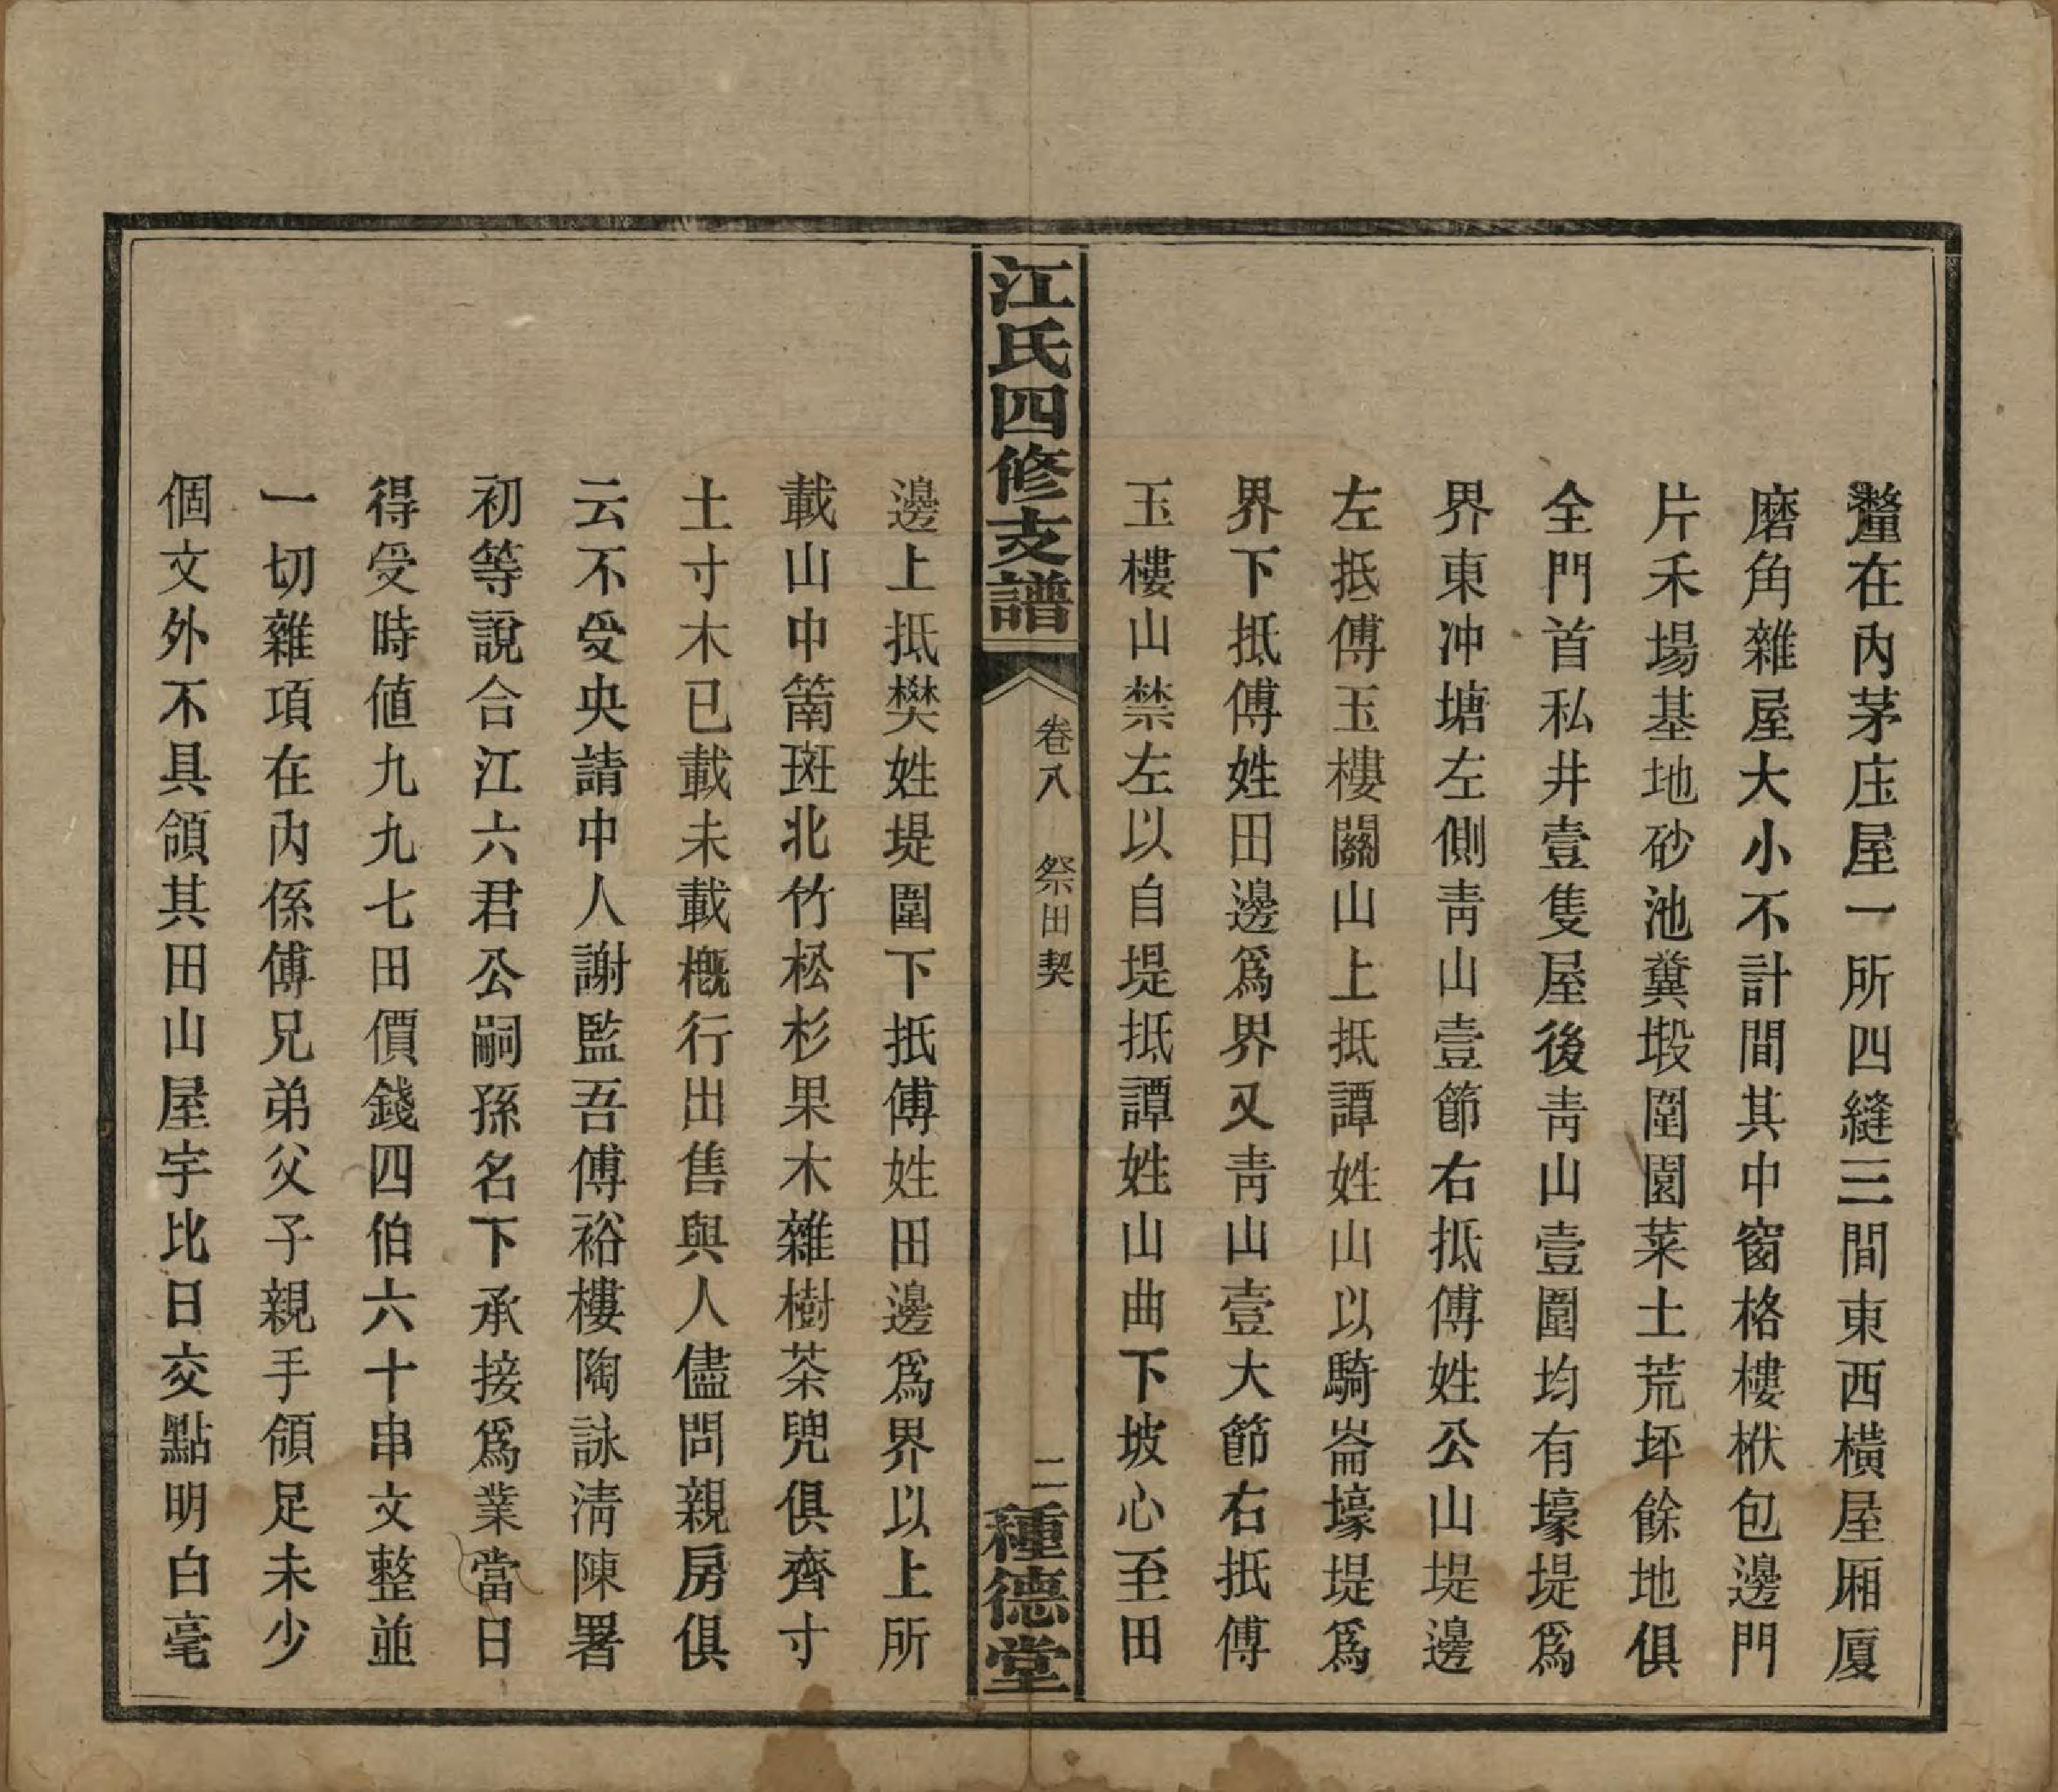 釐在內茅庄屋一所四縫三間東西橫屋厢厦
磨角雜屋大小不計間其中窗格樓栿包邊門
片禾場基地砂池糞塅圍園菜土荒坏餘地俱
全門首私井壹隻屋後靑山壹圍均有壕堤爲
界東冲塘左側靑山壹節右抵傅姓公山堤邊
左抵傅玉樓關山上抵譚姓山以騎崙壕堤爲
界下抵傅姓田邊爲界又靑山壹大節右抵傅
玉樓山禁左以自堤抵譚姓山曲下坡心至田
江氏四修支譜
卷八　祭田契
二
種德堂
邊上抵樊姓堤圍下抵傅姓田邊爲界以上所
載山中筩斑北竹松杉果木雜樹茶兜俱齊寸
土寸木已載未載槪行出售與人儘問親房俱
云不受央請中人謝監吾傅裕樓陶詠淸陳署
初等說合江六君公嗣孫名下承接爲業當日
得受時値九九七田價錢四伯六十串文整並
一切雜項在內係傅兄弟父子親手領足未少
個文外不具領其田山屋宇比日交點明白毫